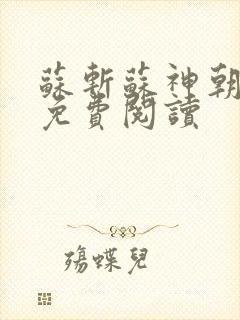 蘇斬蘇神朝
免費閱讀
殤蝶兒